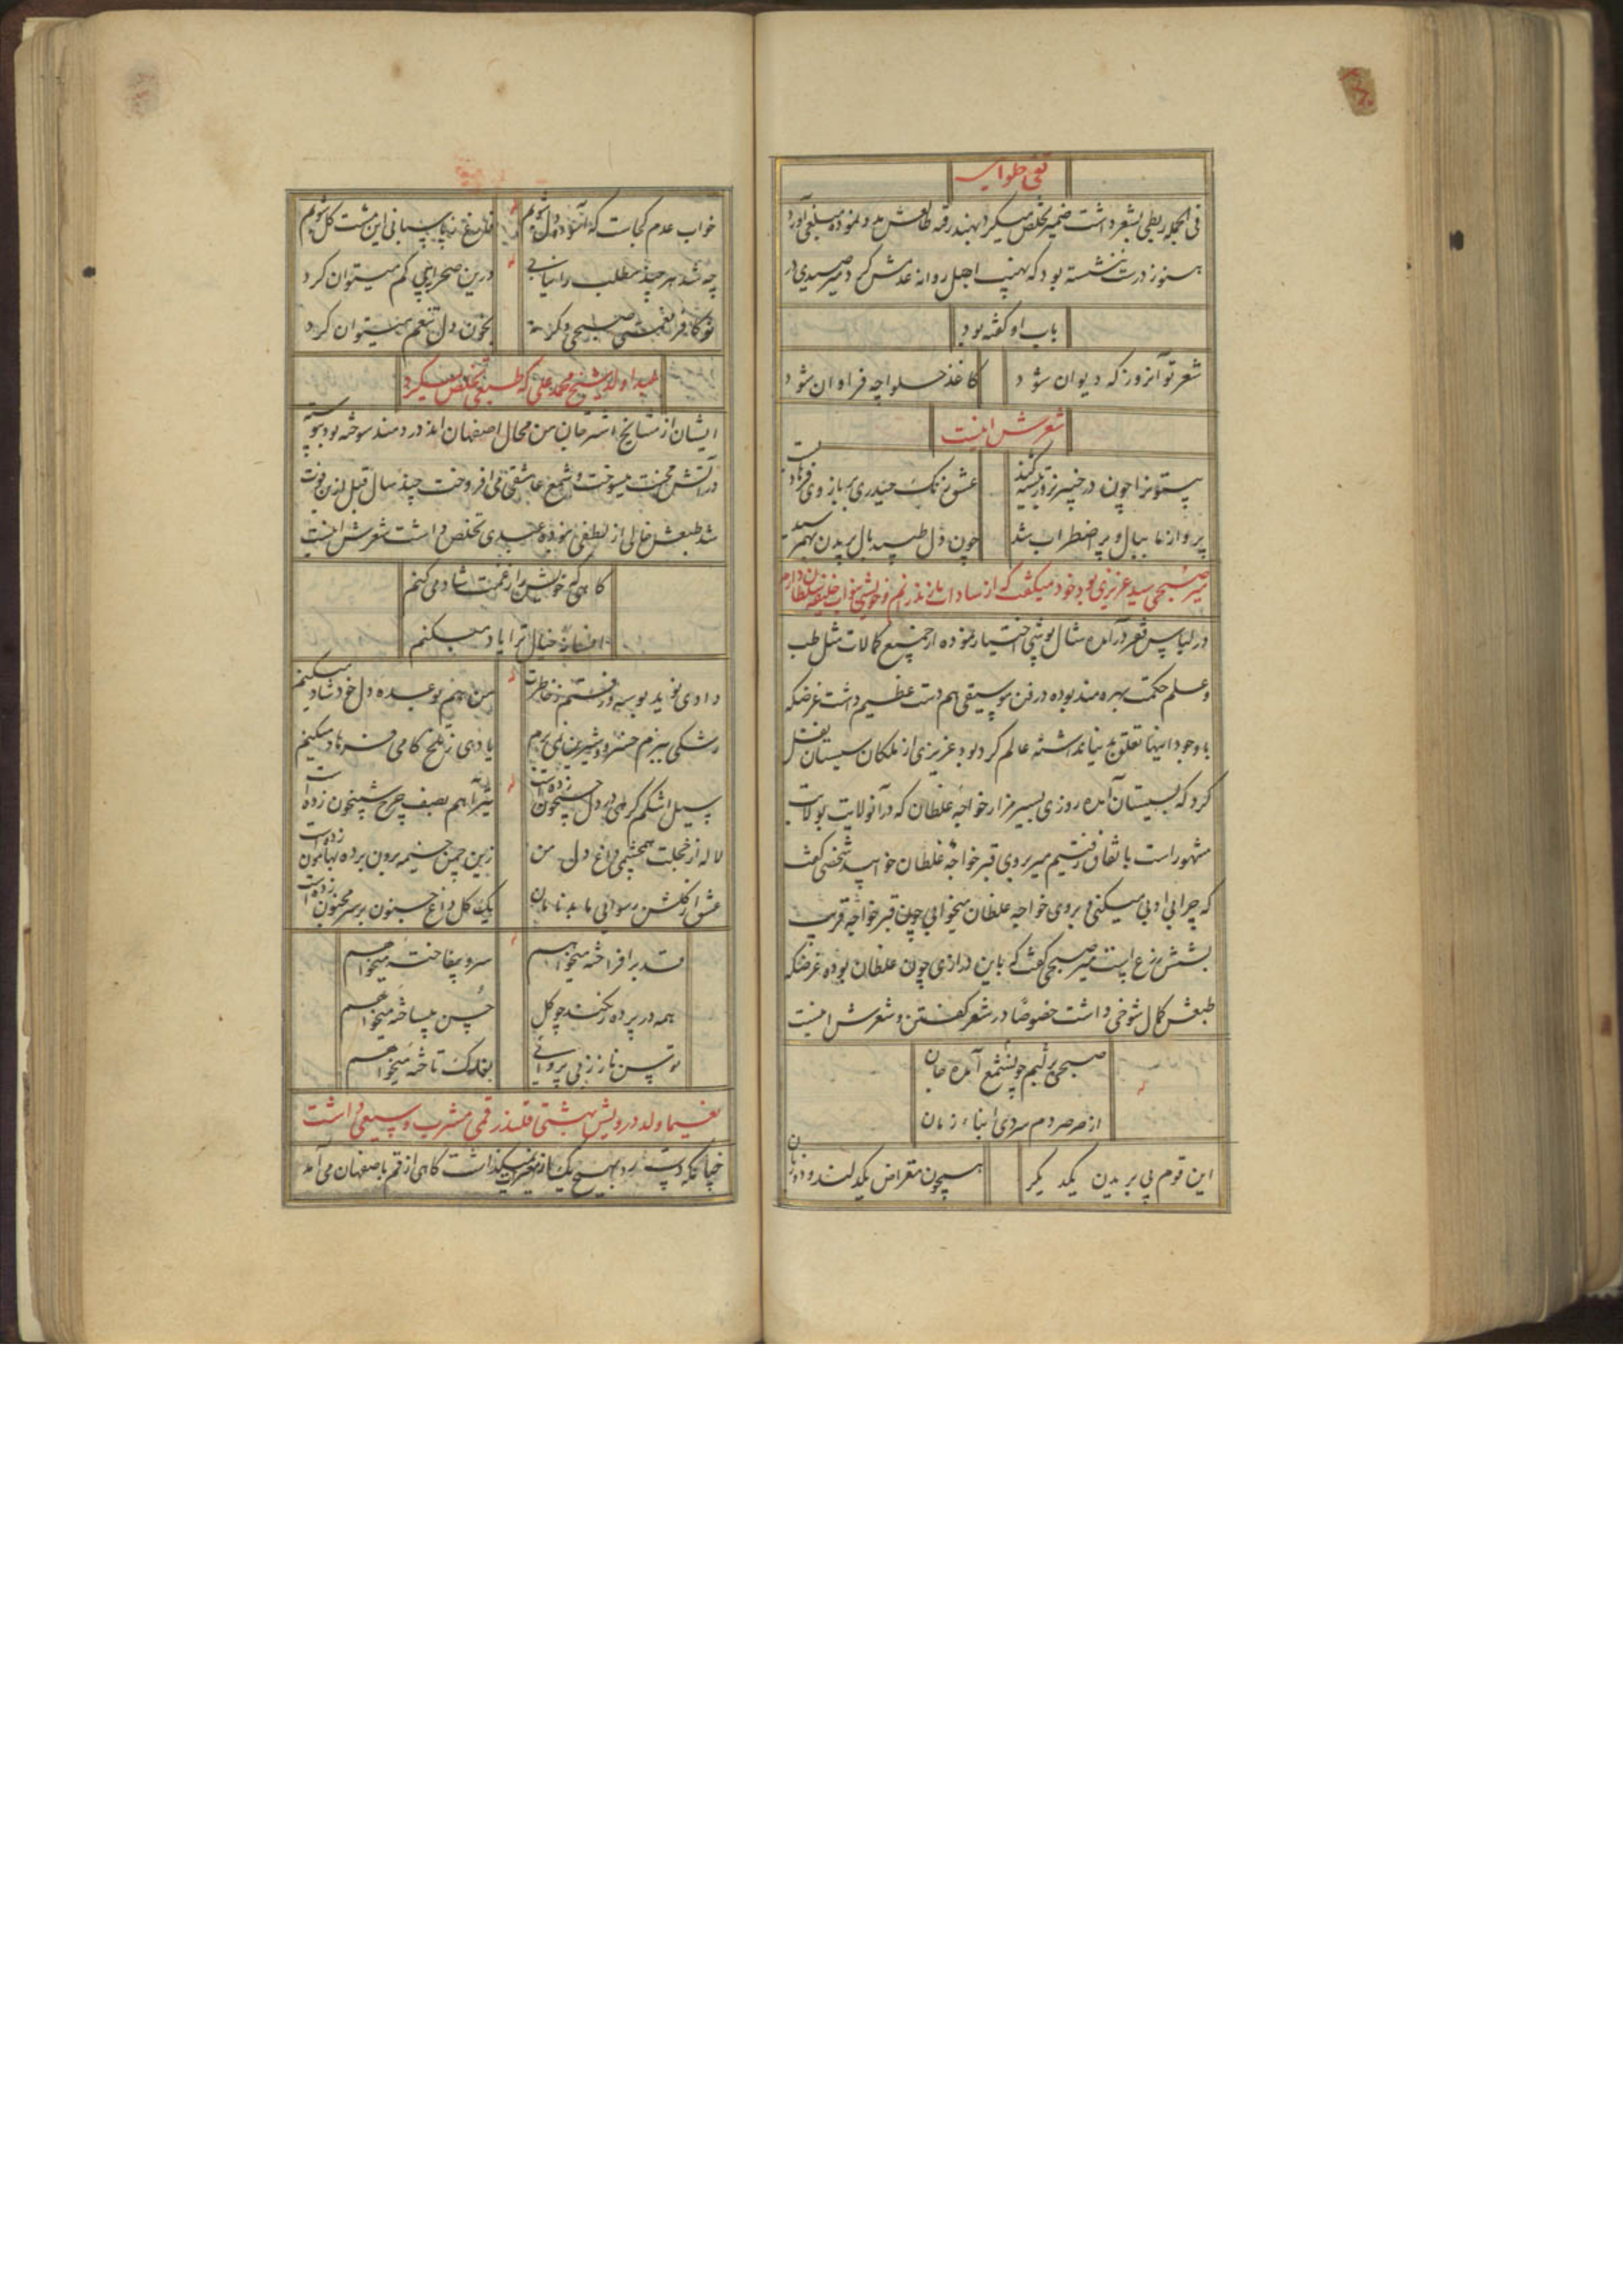 تقی حلوایی
فی الجمله ربطی بشعر داشت ضمیر تخلص میکرد بهند رفته طالعش مدد نموده مبلغی آورد
هنوز درست ننشسته بود که نهیب اجل روانه عدمش کرد میر صیدی در
باب او گفته بود
شعر تو آنروز که دیوان شود
کاغذ حلواچه فراوان شود
شعرش اینست
عشوع نمک حیدری بر بازوی فرهاد
پرواز ما ببال و پر اضطراب شد
چون دل طپید بال پریدن بهم رسید
میر صبحی سید عزیزی بود خود میگفت که از سادات مازندرانم و خویشی بنواب خلیفه سلطان دارم
در لباس فقر درآمده شال پوشی اختیار نموده از جمیع کمالات مثل طب
و علم حکمت بهره مند بوده در فن موسیقی هم دست عظیم داشت غرضکه
با وجود اینها تعلق بدنیا نداشته عالم گرد بود عزیزی از ملکان سیستان نقل
کرد که بسیستان آمده روزی بسیر مزار خواجه غلطان که در آنولایت بولایت
مشهور است باتفاق رفتیم میر بروی قبر خواجه غلطان خوابید شخصی گفت
که چرا بی ادبی میکنی و بروی خواجه غلطان میخوابی چون قبر خواجه قریب
بشش زرع است میر صبحی گفت که باین درازی چون غلطان بوده غرضکه
طبعش کمال شوخی داشت خصوصا در شعر گفتن و شعرش اینست
صبحی بر لبم چو شمع آمده جان
از صرصر دم سردی ابناء زمان
این قوم پی بریدن یکدیگر
همچون مقراض یکدلند و دو زبان
خواب عدم کجاست که آسوده دل شویم
فارغ ز پاسبانی این مشت گل شویم
چه شد هر چند مطلب را نیابی
درین صحرا پیی گم میتوان کرد
تو کافر نعمتی صبحی وگرنه
بخون دل تنعم میتوان کرد
عبدا ولد شیخ محمد علی که طبیعی تخلص میکرد
ایشان از مشایخ اشترجان من محال اصفهان اند دردمند سوخته بود پیوسته
در آتش محبت میسوخت و شمع عاشقی می افروخت چند سال قبل ازین فوت
شد طبعش خالی از لطفی نبوده عبدی تخلص داشت شعرش اینست
گاهی که خویش را ز غمت شاد می کنم
افسانه خیال ترا یاد میکنم
دادی نوید بوسه و رفتم ز خاطرت
من هم بوعده دل خود شاد میکنم
رشکی ببزم خسرو و شیرین نمی برم
یادی ز تلخ کامی فرهاد میکنم
سیل اشکم گرهی در دل جیحون زده است
تیر آهم بصف چرخ شبیخون زده است
لاله از خجلت همچشمی داغ دل من
زین چمن خیمه برون برده بهامون زده است
عشق از گلشن رسوائی ما بدنامان
یک گل داغ جنون بر سر مجنون زده است
قد برافراخته میخواهم
سرو بیفاخته میخواهم
همه در پرده رنگند چو گل
حسن بیساخته میخواهم
توسن ناز ز بی پروائی
بفلک تاخته میخواهم
نعیما ولد درویش بهشتی قلندر قمی مشرب وسیعی داشت
چنانکه دست رد بهیچ یک از مغیرات نمیگذاشت گاهی از قم باصفهان می آمد